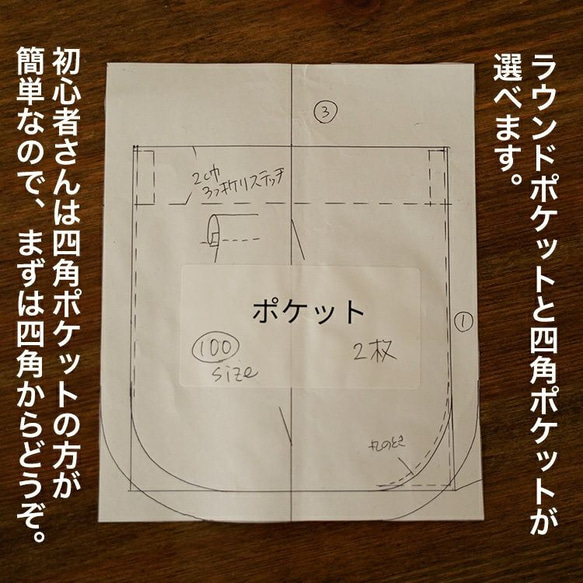 ラウンドポケットと四角ポケットが
選べます。
③
2cm巾
3つ折リステッチ
ポケット
100
size
2枚
①
丸のとき
初心者さんは四角ポケットの方が
簡単なので、まずは四角からどうぞ。